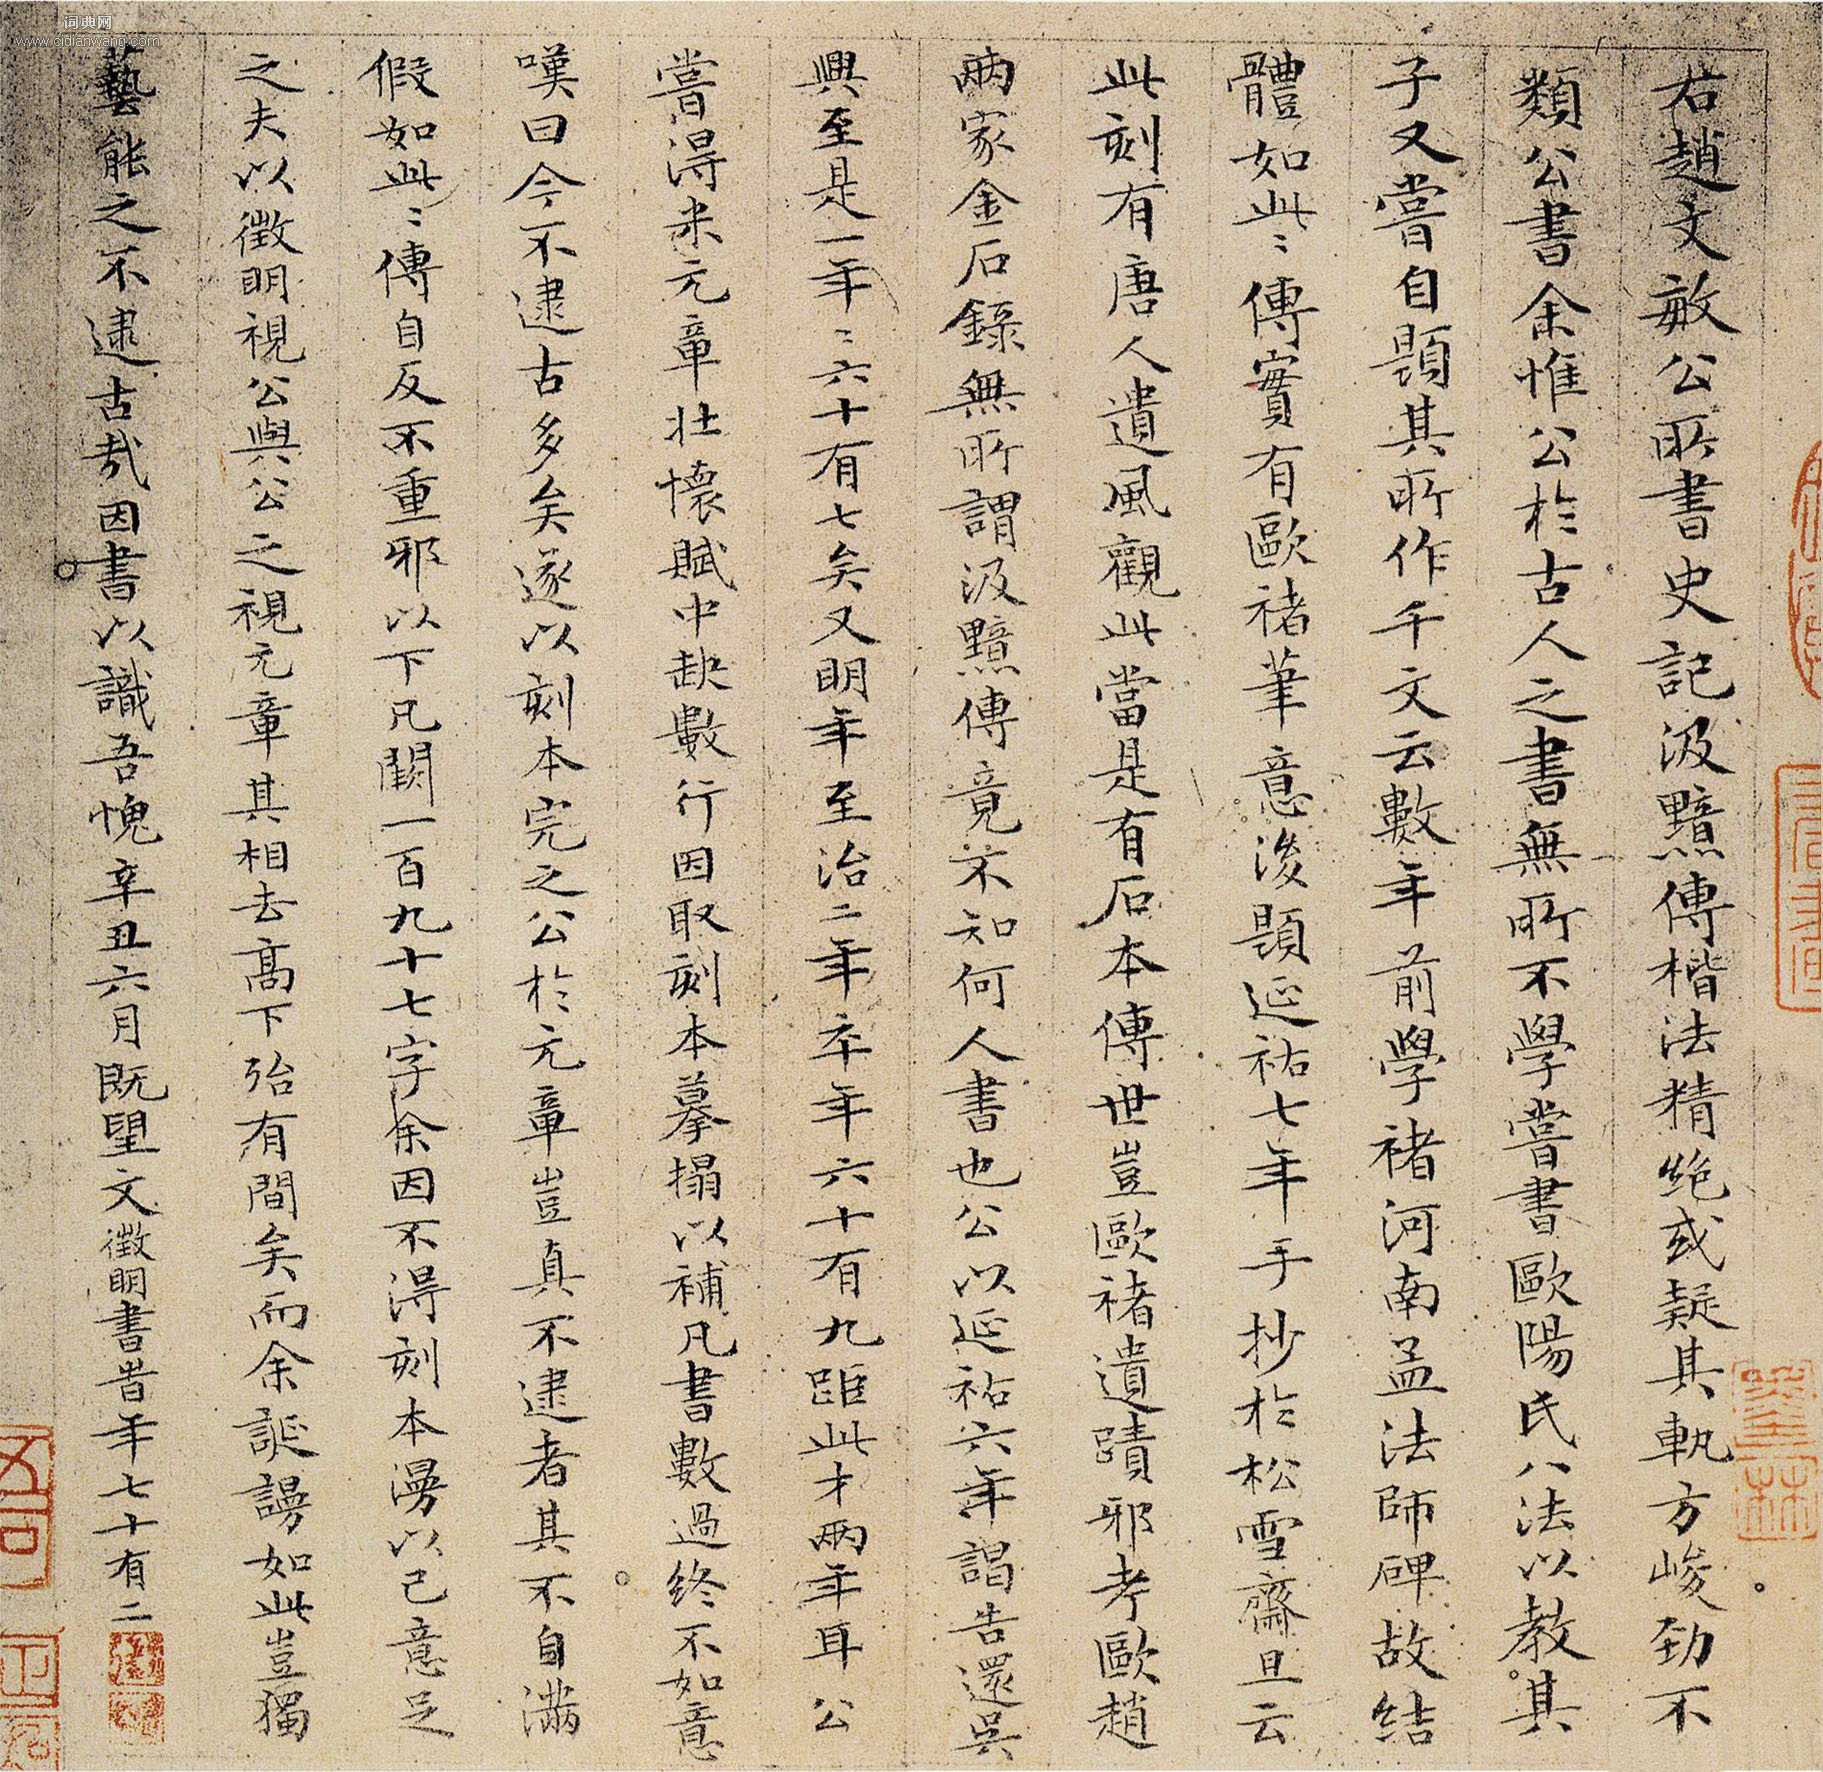 词典网
www.cidianwang.com
右趙文敏公所書史記汲黯傳楷法精絕或疑其軌方峻勁不
類公書余惟公於古人之書無所不學嘗書歐陽氏八法以教其
子又嘗自題其所作千文云數年前學褚河南孟法師碑故結
體如此〻傳實有歐褚筆意後題延祐七年手抄於松雪齋且云
此刻有唐人遺風觀此當是有石本傳世豈歐褚遺蹟邪考歐趙
兩家金石錄無所謂汲黯傳竟不知何人書也公以延祐六年謁告還吳
興至是一年〻六十有七矣又明年至治二年卒年六十有九距此才兩年耳公
嘗得米元章壯懷賦中缺數行因取刻本摹搨以補凡書數過終不如意
嘆曰今不逮古多矣遂以刻本完之公於元章豈真不逮者其不自滿
假如此〻傳自反不重邪以下凡闕一百九十七字余因不得刻本漫以己意足
之夫以徵明視公與公之視元章其相去高下殆有間矣而余誕謾如此豈獨
藝能之不逮古哉因書以識吾愧辛丑六月既望文徵明書昔年七十有二